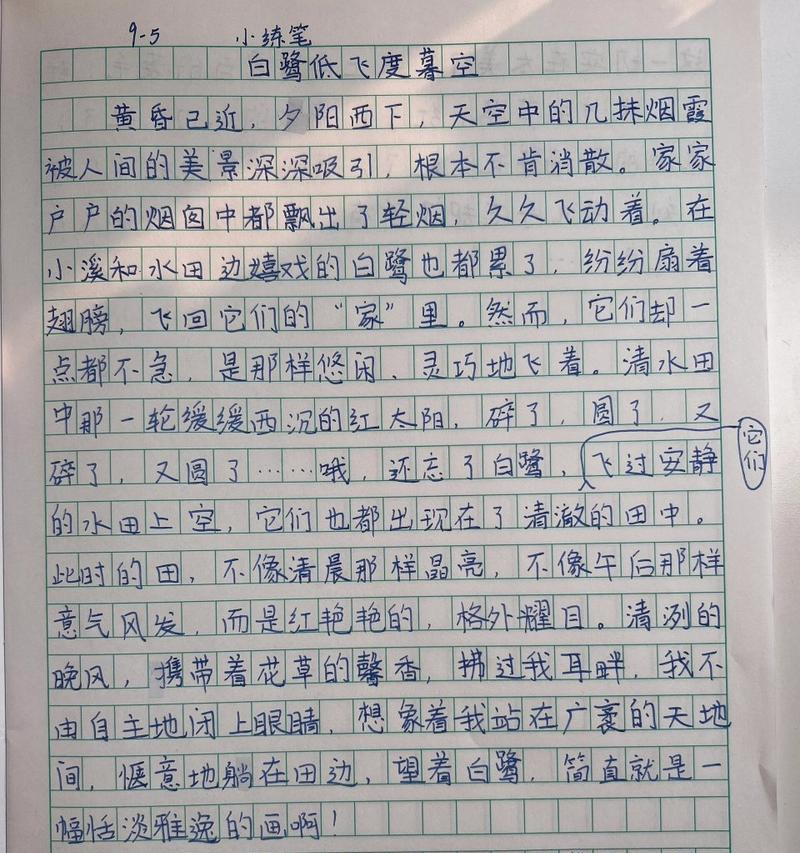 9-5 小练笔
白鹭低飞度暮空
黄昏已近，夕阳西下，天空中的几抹烟霞
被人间的美景深深吸引，根本不肯消散。家家
户户的烟囱中都飘出了轻烟，久久飞动着。在
小溪和水田边嬉戏的白鹭也都累了，纷纷扇着
翅膀，飞回它们的“家”里。然而，它们却一
点都不急，是那样悠闲、灵巧地飞着。清水田
中那一轮缓缓西沉的红太阳，碎了，圆了，又
碎了，又圆了……哦，还忘了白鹭，它们飞过安静
的水田上空，它们也都出现在了清澈的田中。
此时的田，不像清晨那样晶亮，不像午后那样
意气风发，而是红艳艳的，格外耀目。清冽的
晚风，携带着花草的馨香，拂过我耳畔，我不
由自主地闭上眼睛，想象着我站在广袤的天地
间，惬意地躺在田边，望着白鹭，简直就是一
幅恬淡雅逸的画啊！